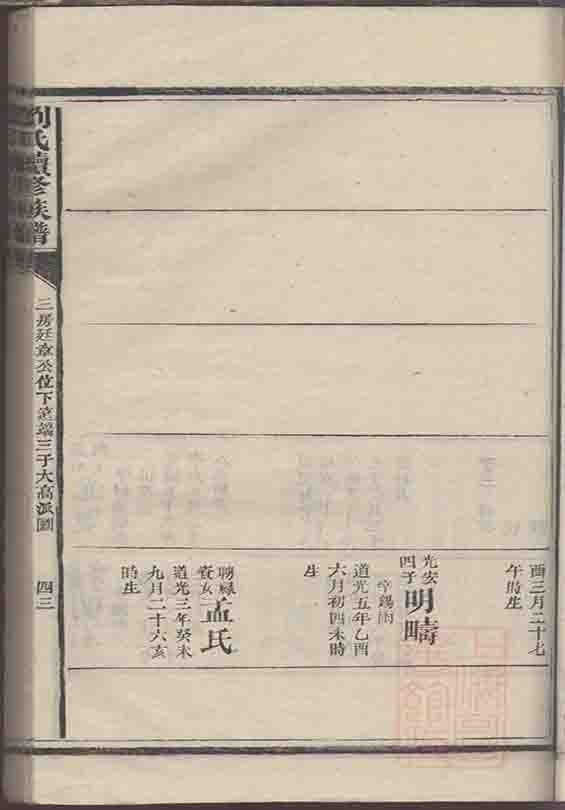 酉三月二十七
午時生
光安
四子
明疇
字錫雨
道光五年乙酉
六月初四未時
生
聘
資女
孟氏
道光三年癸未
九月二十六亥
時生
劉氏續修族譜
三房廷章公位下
三子大高派圖
四三